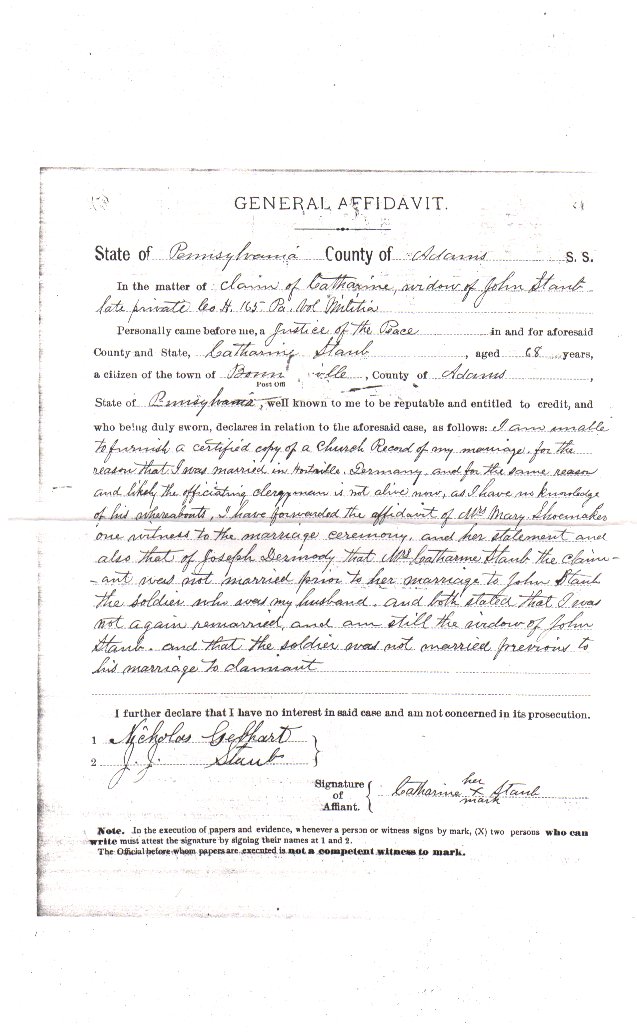 GENERAL AFFIDAVIT.
State of Pennsylvania County of Adams S. S.
In the matter of claim of Catharine, widow of John Staub
late private Co H. 165 Pa. Vol Militia
Personally came before me, a Justice of the Peace in and for aforesaid
County and State, Catharine Staub, aged 68 years,
a citizen of the town of Bonn ville, County of Adams,
Post Off
State of Pennsylvania, well known to me to be reputable and entitled to credit, and
who being duly sworn, declares in relation to the aforesaid case, as follows: I am unable
to furnish a certified copy of a Church Record of my marriage. for the
reason that I was married in Germany. and for the same reason
and likely the officiating clergyman is not alive now, as I have no knowledge
of his whereabouts, I have forwarded the affidavit of Mrs Mary Shoemaker
one witness to the marriage ceremony, and her statement and
also that of Joseph Dermody that Mrs Catharine Staub the claim-
-ant was not married prior to her marriage to John Staub
the soldier who was my husband. and both stated that I was
not again remarried, and am still the widow of John
Staub. and that the soldier was not married previous to
his marriage to claimant
I further declare that I have no interest in said case and am not concerned in its prosecution.
1 Nicholas Gebhart
2 J. J. Staub
Signature of Affiant. Catharine her X mark Staub
Note. In the execution of papers and evidence, whenever a person or witness signs by mark, (X) two persons who can
write must attest the signature by signing their names at 1 and 2.
The Official before whom papers are executed is not a competent witness to mark.